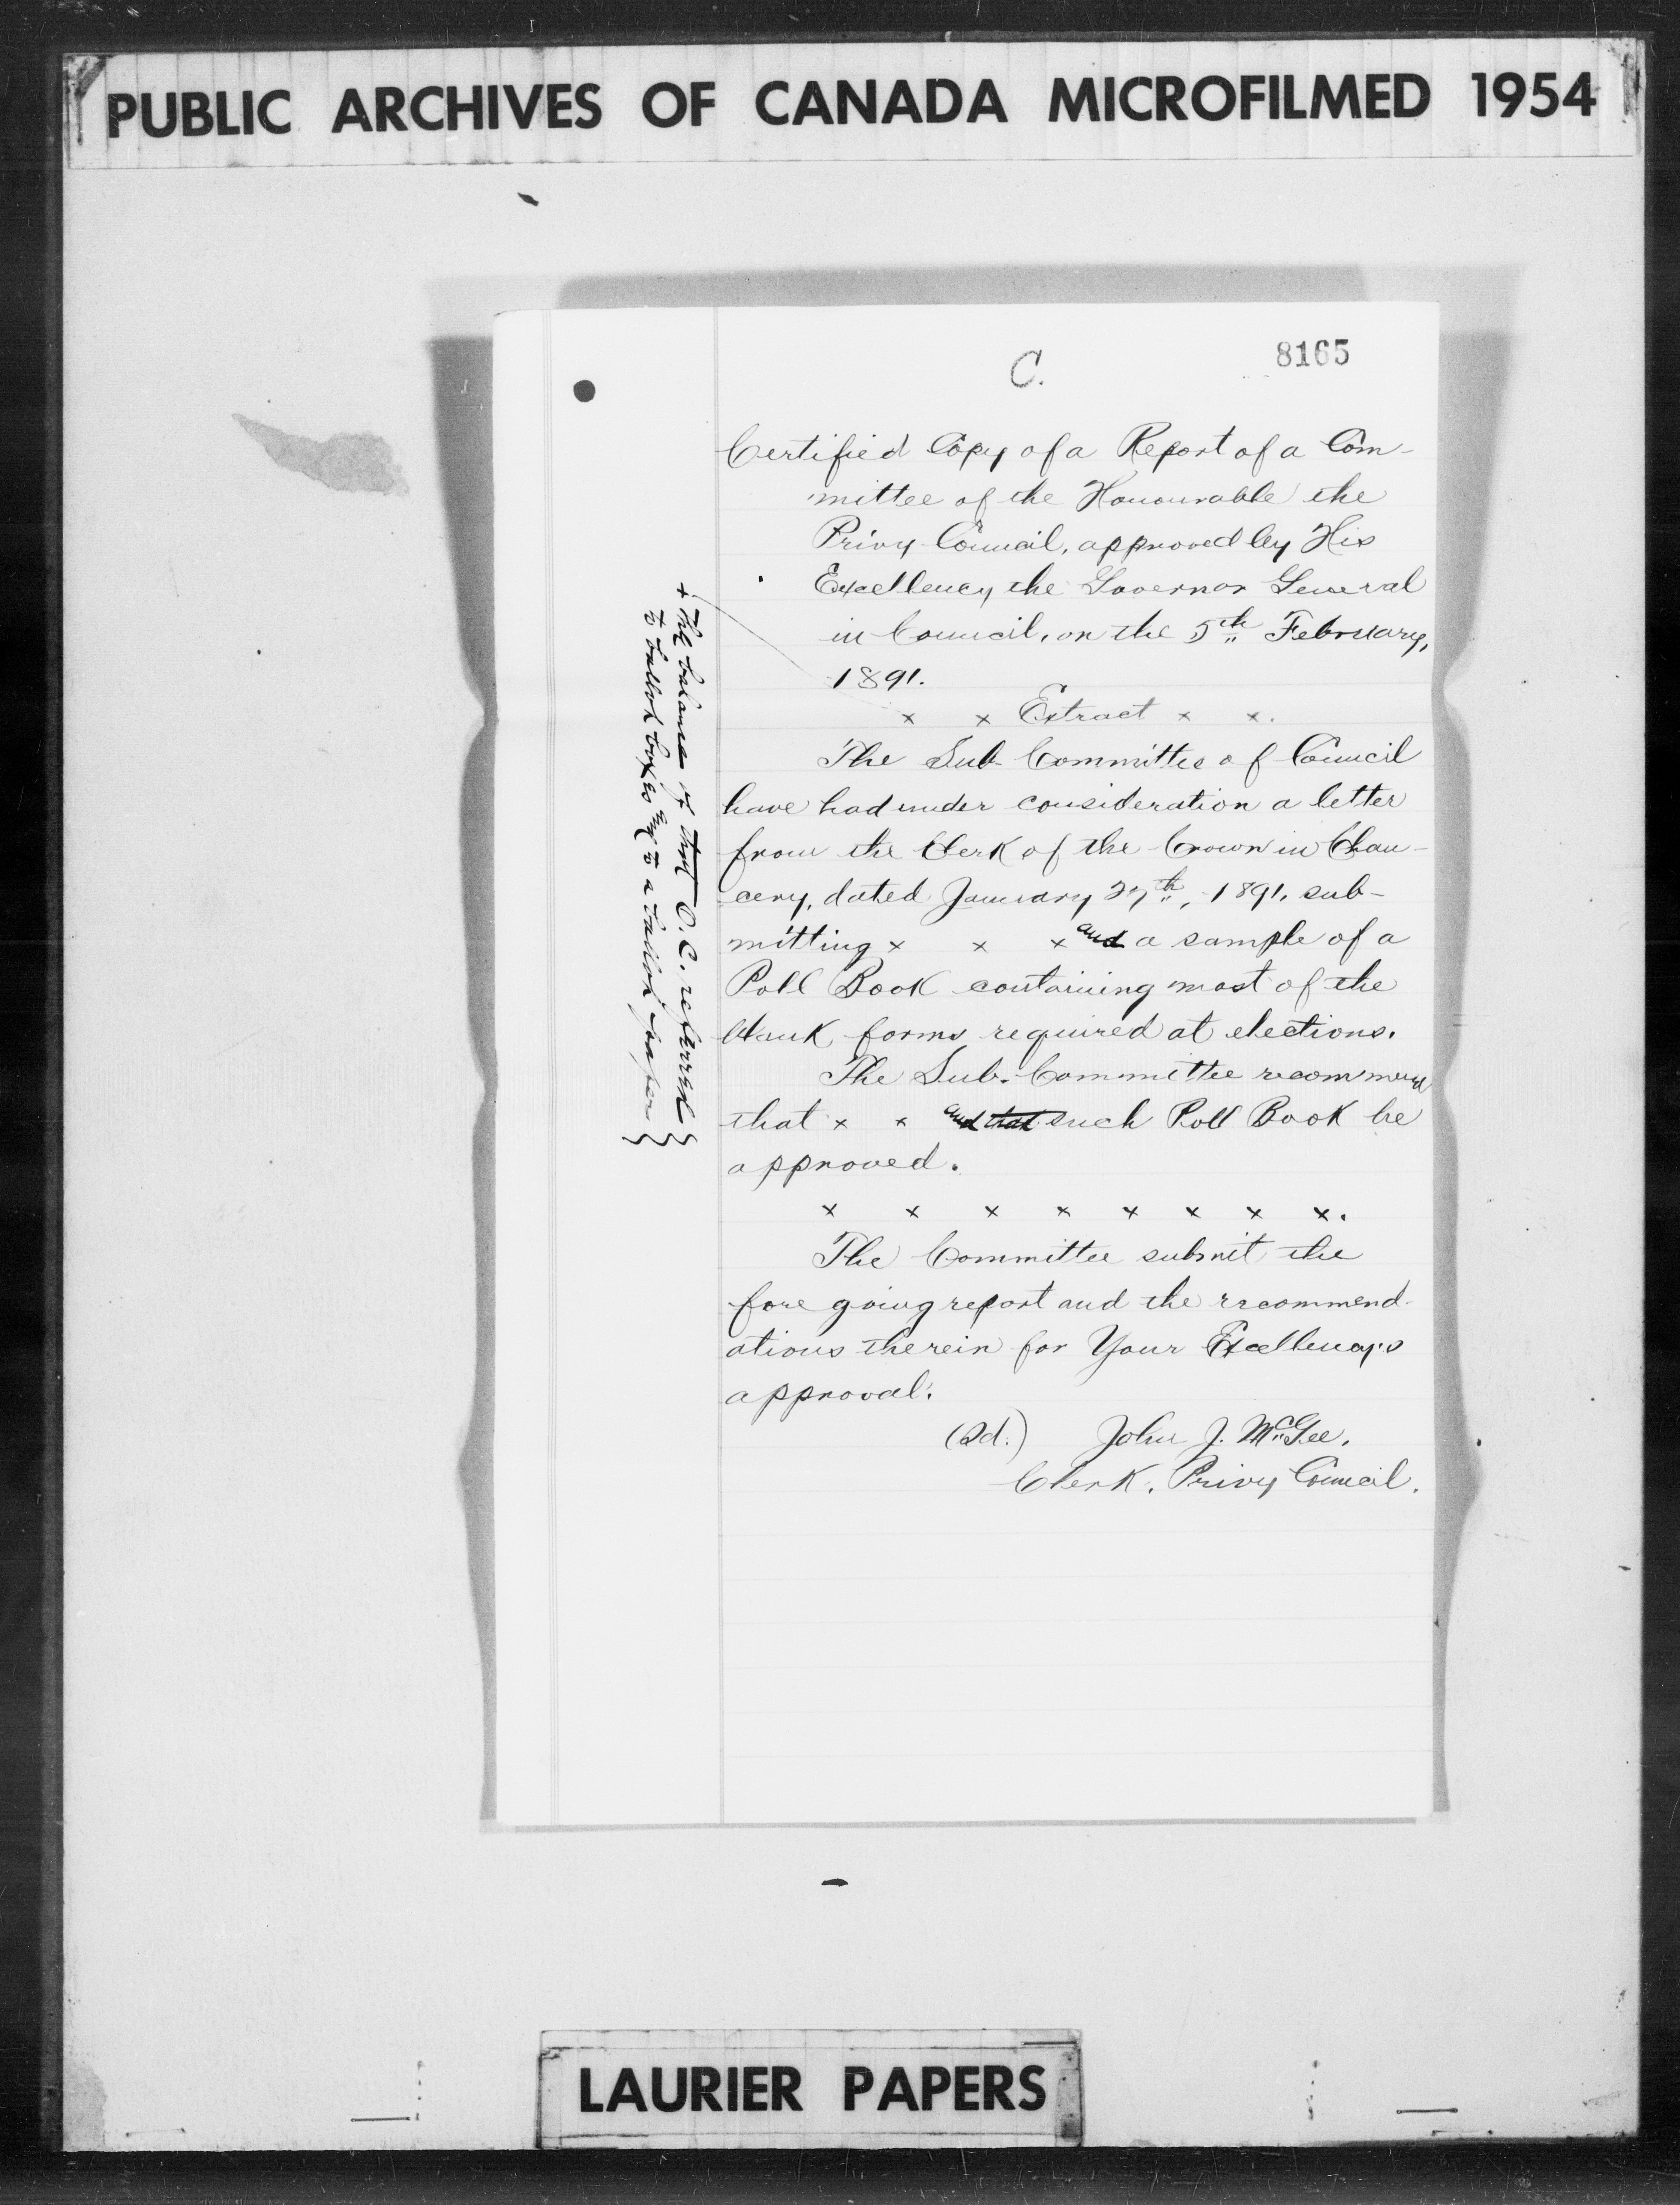 PUBLIC ARCHIVES OF CANADA MICROFILMED 1954
8165
C.
Certified Copy of a Report of a Com-
mittee of the Honourable the
Privy Council, approved by His
Excellency the Governor General
in Council, on the 5th February,
1891.
x x Extract x x.
The Sub-Committee of Council
have had under consideration a letter
from the Clerk of the Crown in Chan-
cery, dated January 27th, 1891, sub-
mitting x x x and a sample of a
Poll Book containing most of the
blank forms required at elections.
The Sub-Committee recommend
that x x and that such Poll Book be
approved.
x x x x x x x x.
The Committee submit the
fore going report and the recommend-
ations therein for Your Excellency's
approval.
(Sd.) John J. McGee.
Clerk, Privy Council.
+ The balance of this O.C. referred
to ballot boxes & to a ballot paper
LAURIER PAPERS